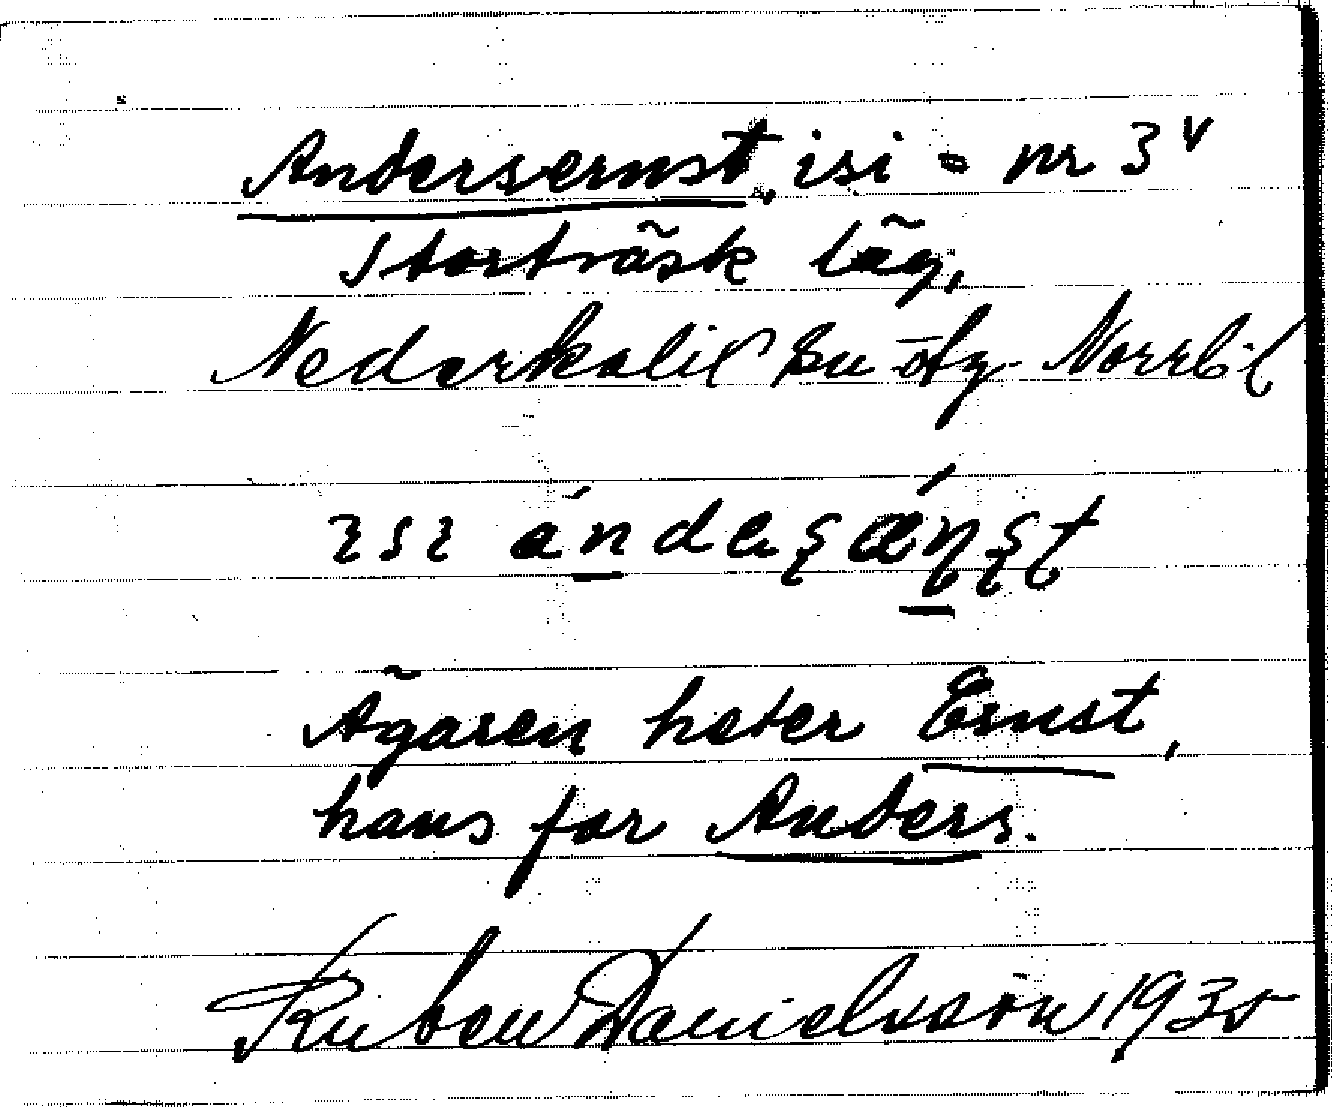 Andersernst, isi = nr 3⁴
Storträsk läg,
Nederkalix sn ofg Norrb l
ɿsɿ ándeʂǽɳʂʈ
Ägaren heter Ernst,
hans far Anders.
Ruben Danielsson 1935